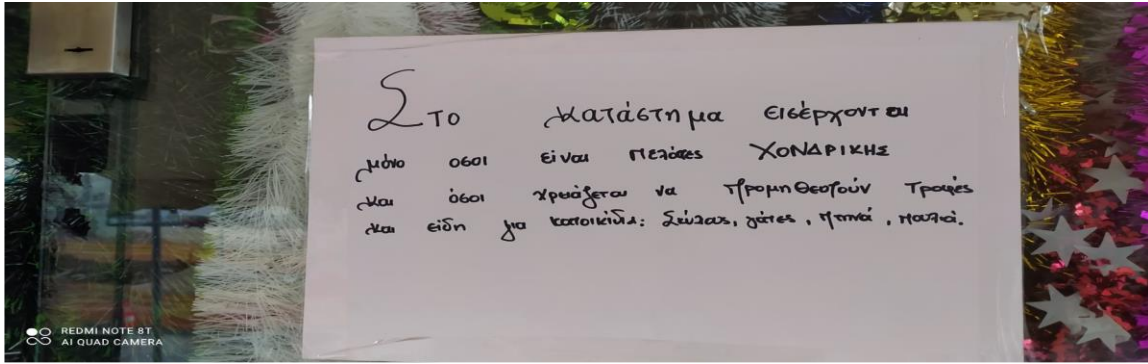 Στο κατάστημα εισέρχονται
μόνο όσοι είναι πελάτες ΧΟΝΔΡΙΚΗΣ
και όσοι χρειάζεται να προμηθευτούν τροφές
και είδη για κατοικίδια: Σκύλους, γάτες, πτηνά, πουλιά.
REDMI NOTE 8T
AI QUAD CAMERA